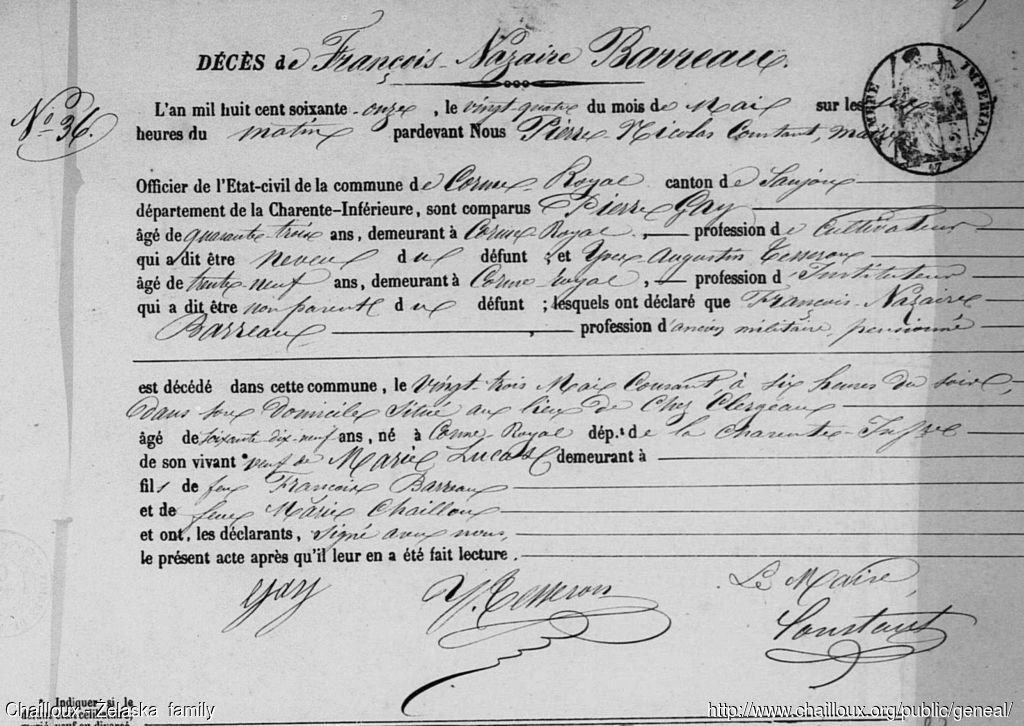 DÉCÈS de François Nazaire Barreau.
N° 36.
TIMBRE IMPÉRIAL
L'an mil huit cent soixante-onze, le vingt-quatre du mois de Mai sur les
heures du matin pardevant Nous Pierre Nicolas Constant, maire
Officier de l'Etat-civil de la commune de Corme-Royal canton de Saujon
département de la Charente-Inférieure, sont comparus Pierre Gay
âgé de quarante-trois ans, demeurant à Corme-Royal, profession de Cultivateur
qui a dit être neveu du défunt ; et Yves Augustin Tesseron
âgé de trente-neuf ans, demeurant à Corme-royal, profession d'Instituteur
qui a dit être non parent du défunt ; lesquels ont déclaré que François-Nazaire
Barreau, profession d'ancien militaire, pensionné
est décédé dans cette commune, le vingt-trois Mai Courant, à six heures du soir,
dans son Domicile situé au lieu de Chez Clergeau
âgé de soixante dix-neuf ans, né à Corme-Royal dép.t de la Charente-Infre
de son vivant veuf de Marie Lucas demeurant à
fils de feu François Barreau
et de feue Marie Chailloux
et ont, les déclarants, signé avec nous,
le présent acte après qu'il leur en a été fait lecture.
Gay Y. Tesseron Le Maire,
Constant
Indiquer si le
Chailloux-Żelaska family http://www.chailloux.org/public/geneal/